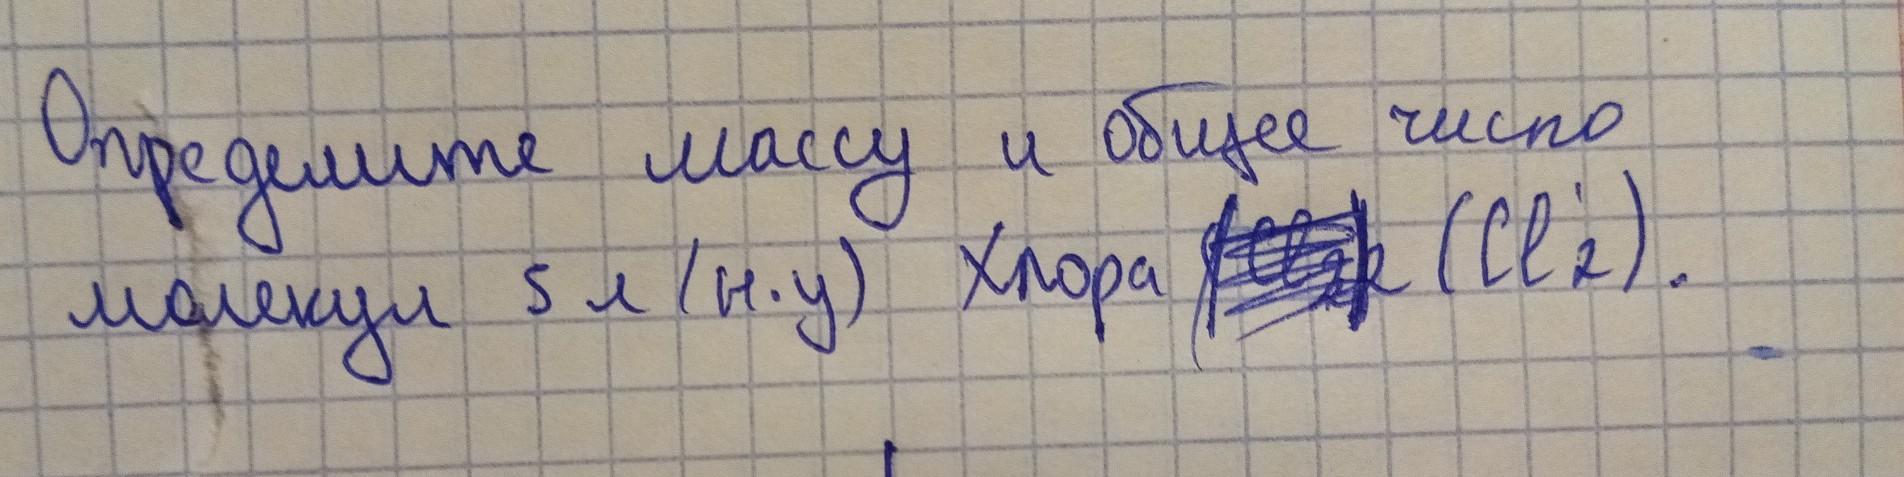 Определите массу и общее число
молекул 5 л (н.у) Хлора (Cl2).